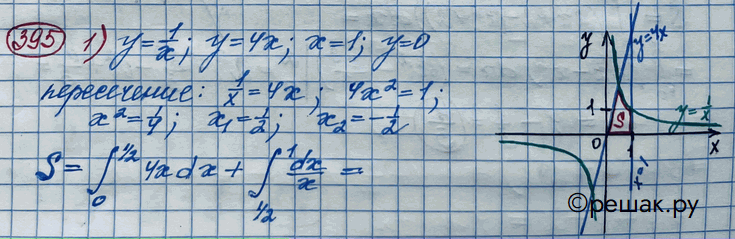 395 1) y = 1/x; y = 4x; x = 1; y = 0
пересечение: 1/x = 4x; 4x² = 1;
x² = 1/4; x₁ = 1/2; x₂ = -1/2
S = ∫₀^{1/2} 4x dx + ∫_{1/2}^1 dx/x =
y
y=4x
1
S
y=1/x
0
1
x
x=1
©решак.ру